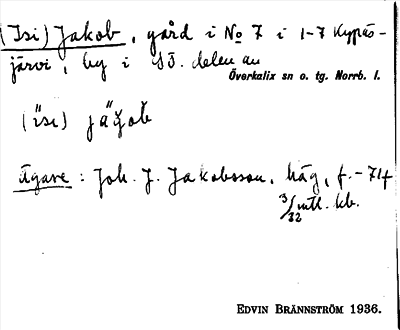 (Isi) Jakob, gård i No 7 i 1-7 Kypäs-
järvi, by i SÖ. delen av
Överkalix sn o. tg. Norrb. l.
(ïsi) jäǧob
Ägare: Joh. J. Jakobsson, häg, f. -71f
3/32 mtl. kb.
EDVIN BRÄNNSTRÖM 1936.